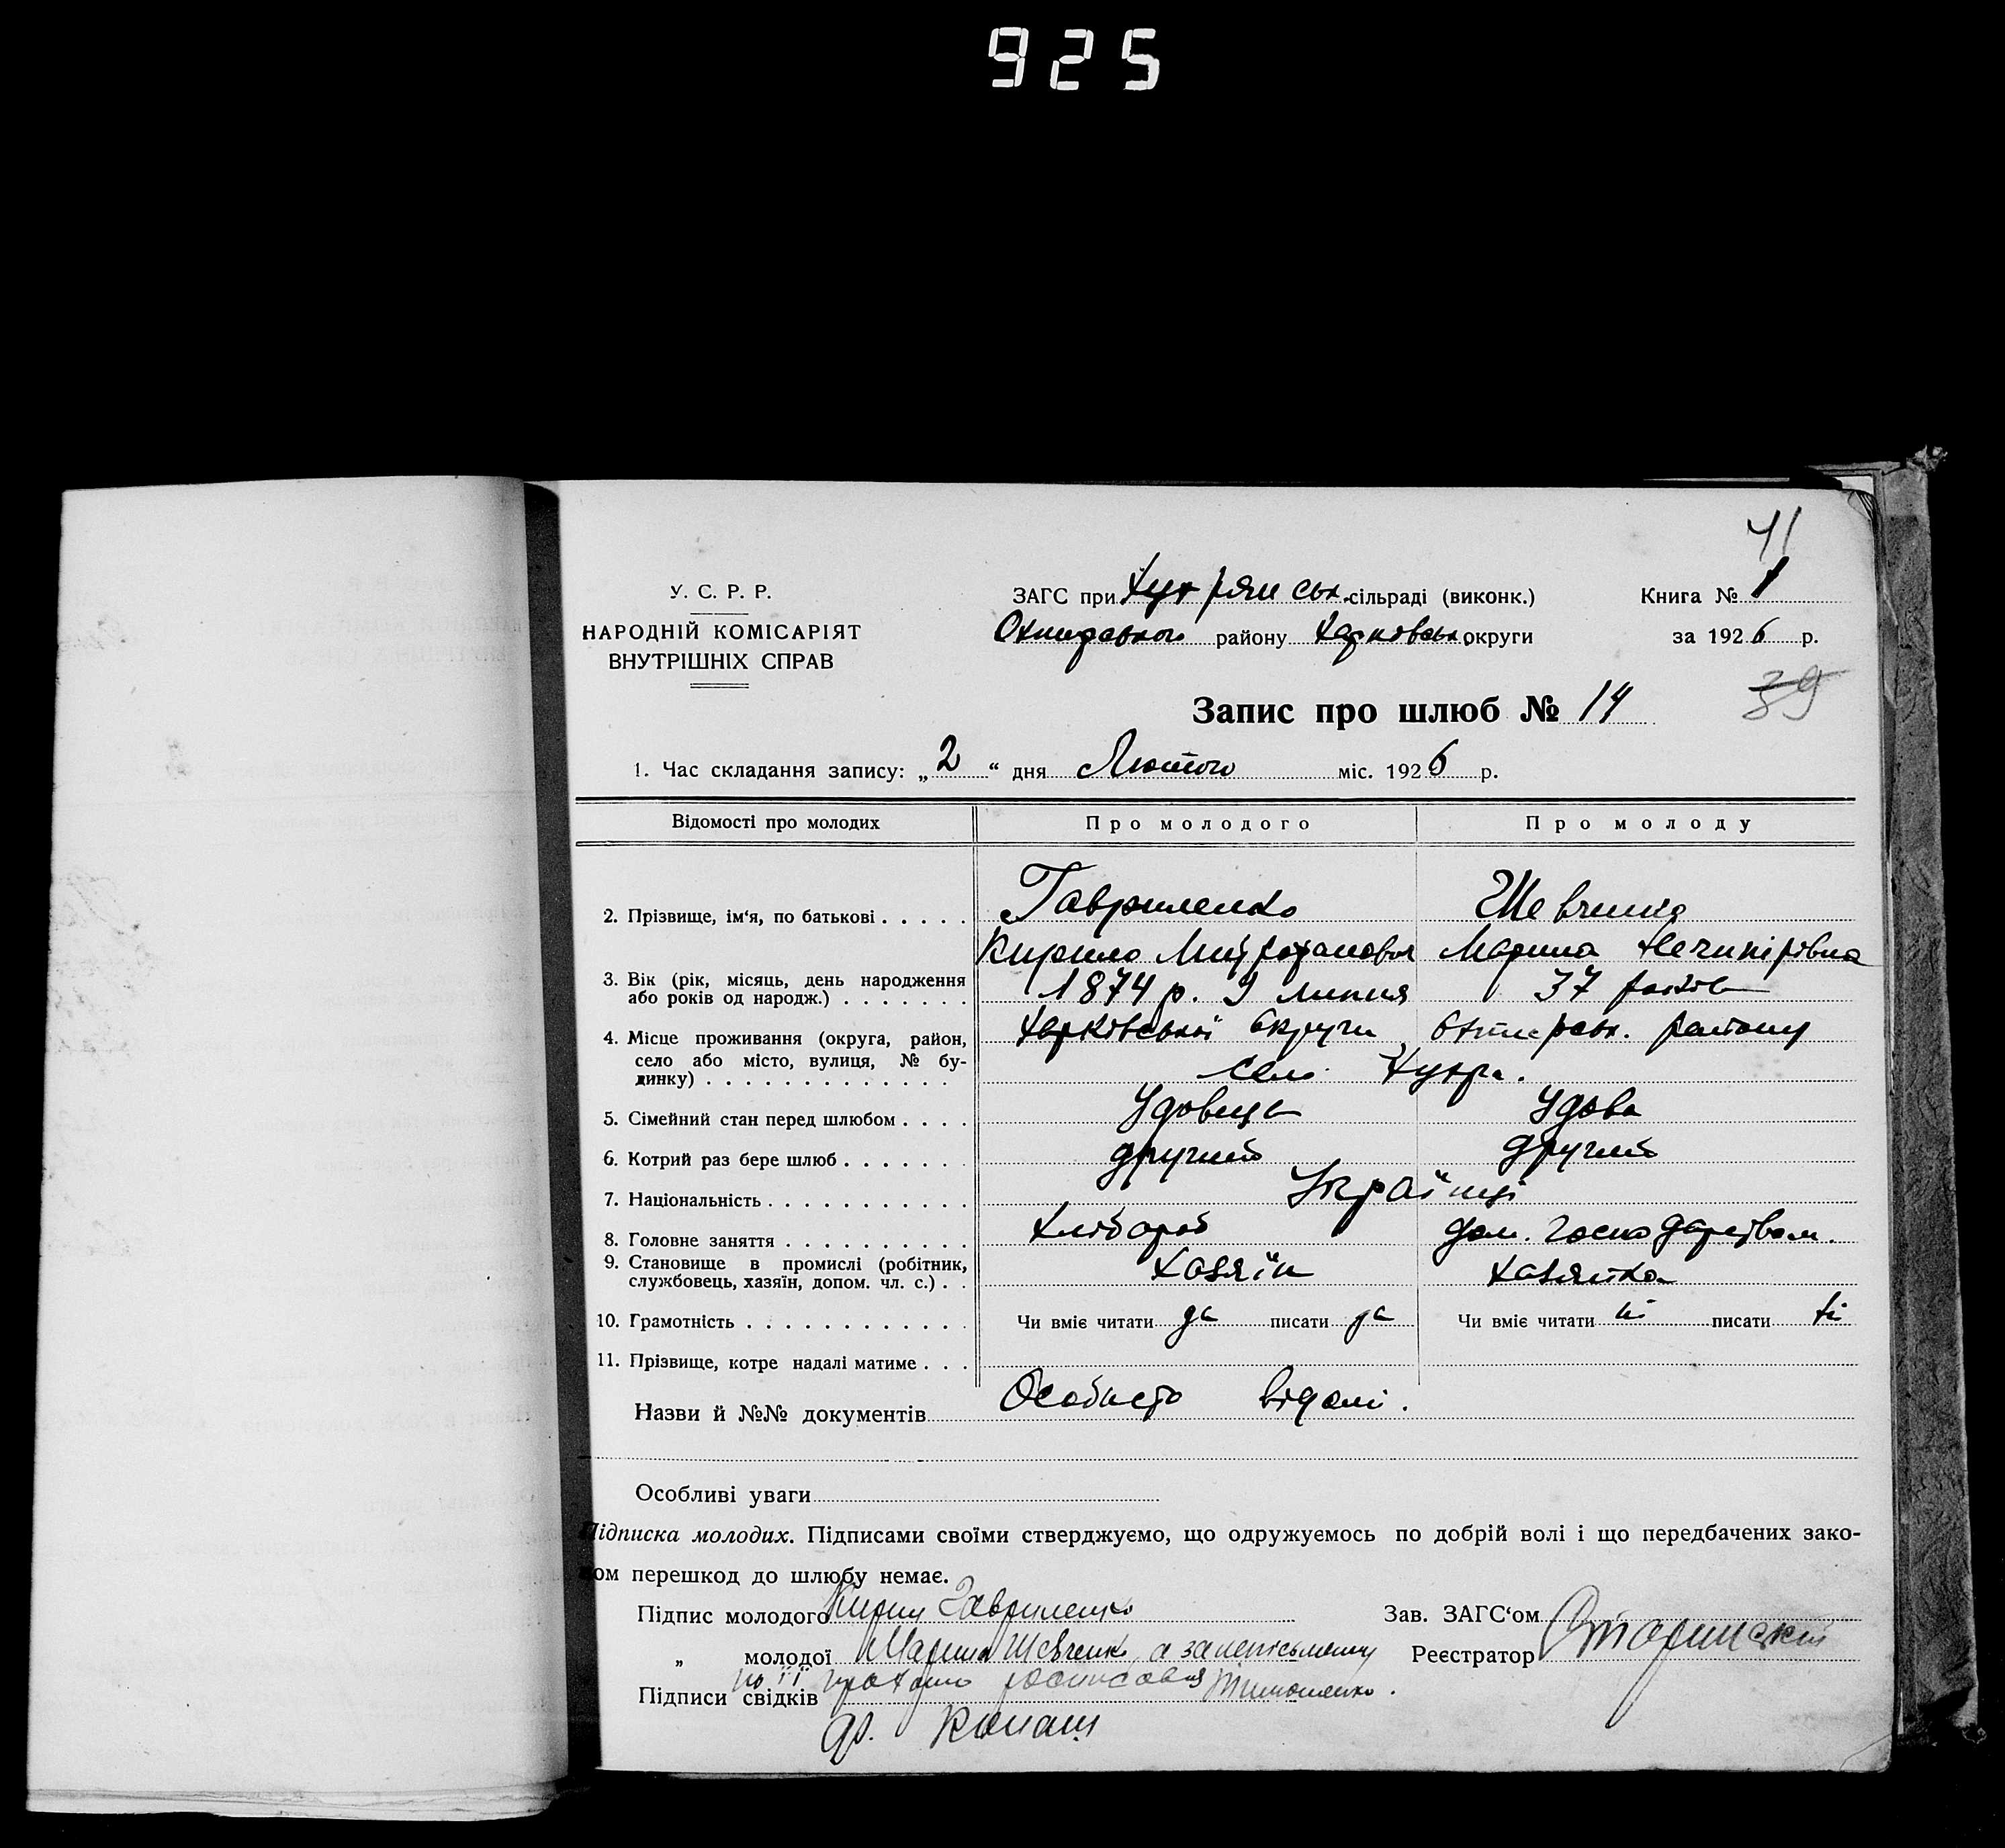 925
41
У. С. Р. Р.
НАРОДНІЙ КОМІСАРІЯТ
ВНУТРІШНІХ СПРАВ
ЗАГС при Хухрянськ. сільраді (виконк.)
Охтирського району Харківськ округи
Книга № 1
за 1926 р.
39
Запис про шлюб № 14
1. Час складання запису: „2“ дня Лютого міс. 1926 р.
Відомості про молодих Про молодого Про молоду
2. Прізвище, ім‘я, по батькові . . . . . Гавриленко Шевченко
Кирило Митрофанович Марина Нечипірівна
3. Вік (рік, місяць, день народження або років од народж.) . . . . . . . 1874 р. 9 липня 37 років
4. Місце проживання (округа, район, село або місто, вулиця, № будинку) . . . . . . . . . . . . . Харківської округи Охтирськ. району
село Хухра.
5. Сімейний стан перед шлюбом . . . . Удовець Удова
6. Котрий раз бере шлюб . . . . . . . другий другий
7. Національність . . . . . . . . . . . Українці
8. Головне заняття . . . . . . . . . . Хлібороб дом. господарством.
9. Становище в промислі (робітник, службовець, хазяїн, допом. чл. с.) . . Хазяїн Хазяйка
10. Грамотність . . . . . . . . . . . . Чи вміє читати да писати да Чи вміє читати ні писати ні
11. Прізвище, котре надалі матиме . . .
Назви й №№ документів Особисто відомі.
Особливі уваги
Підписка молодих. Підписами своїми стверджуємо, що одружуємось по добрій волі і що передбачених зако-
ном перешкод до шлюбу немає.
Підпис молодого Кирил Гавриленко Зав. ЗАГС‘ом
„ молодої Марина Шевченко, а за неписьменну Реєстратор
по її проханю росписався Тимошенко.
Підписи свідків